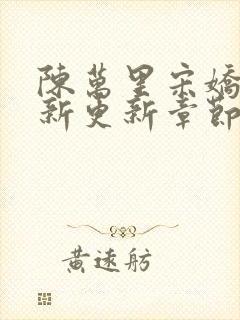 陳萬里宋嬌
新更新章節
黃遠舫